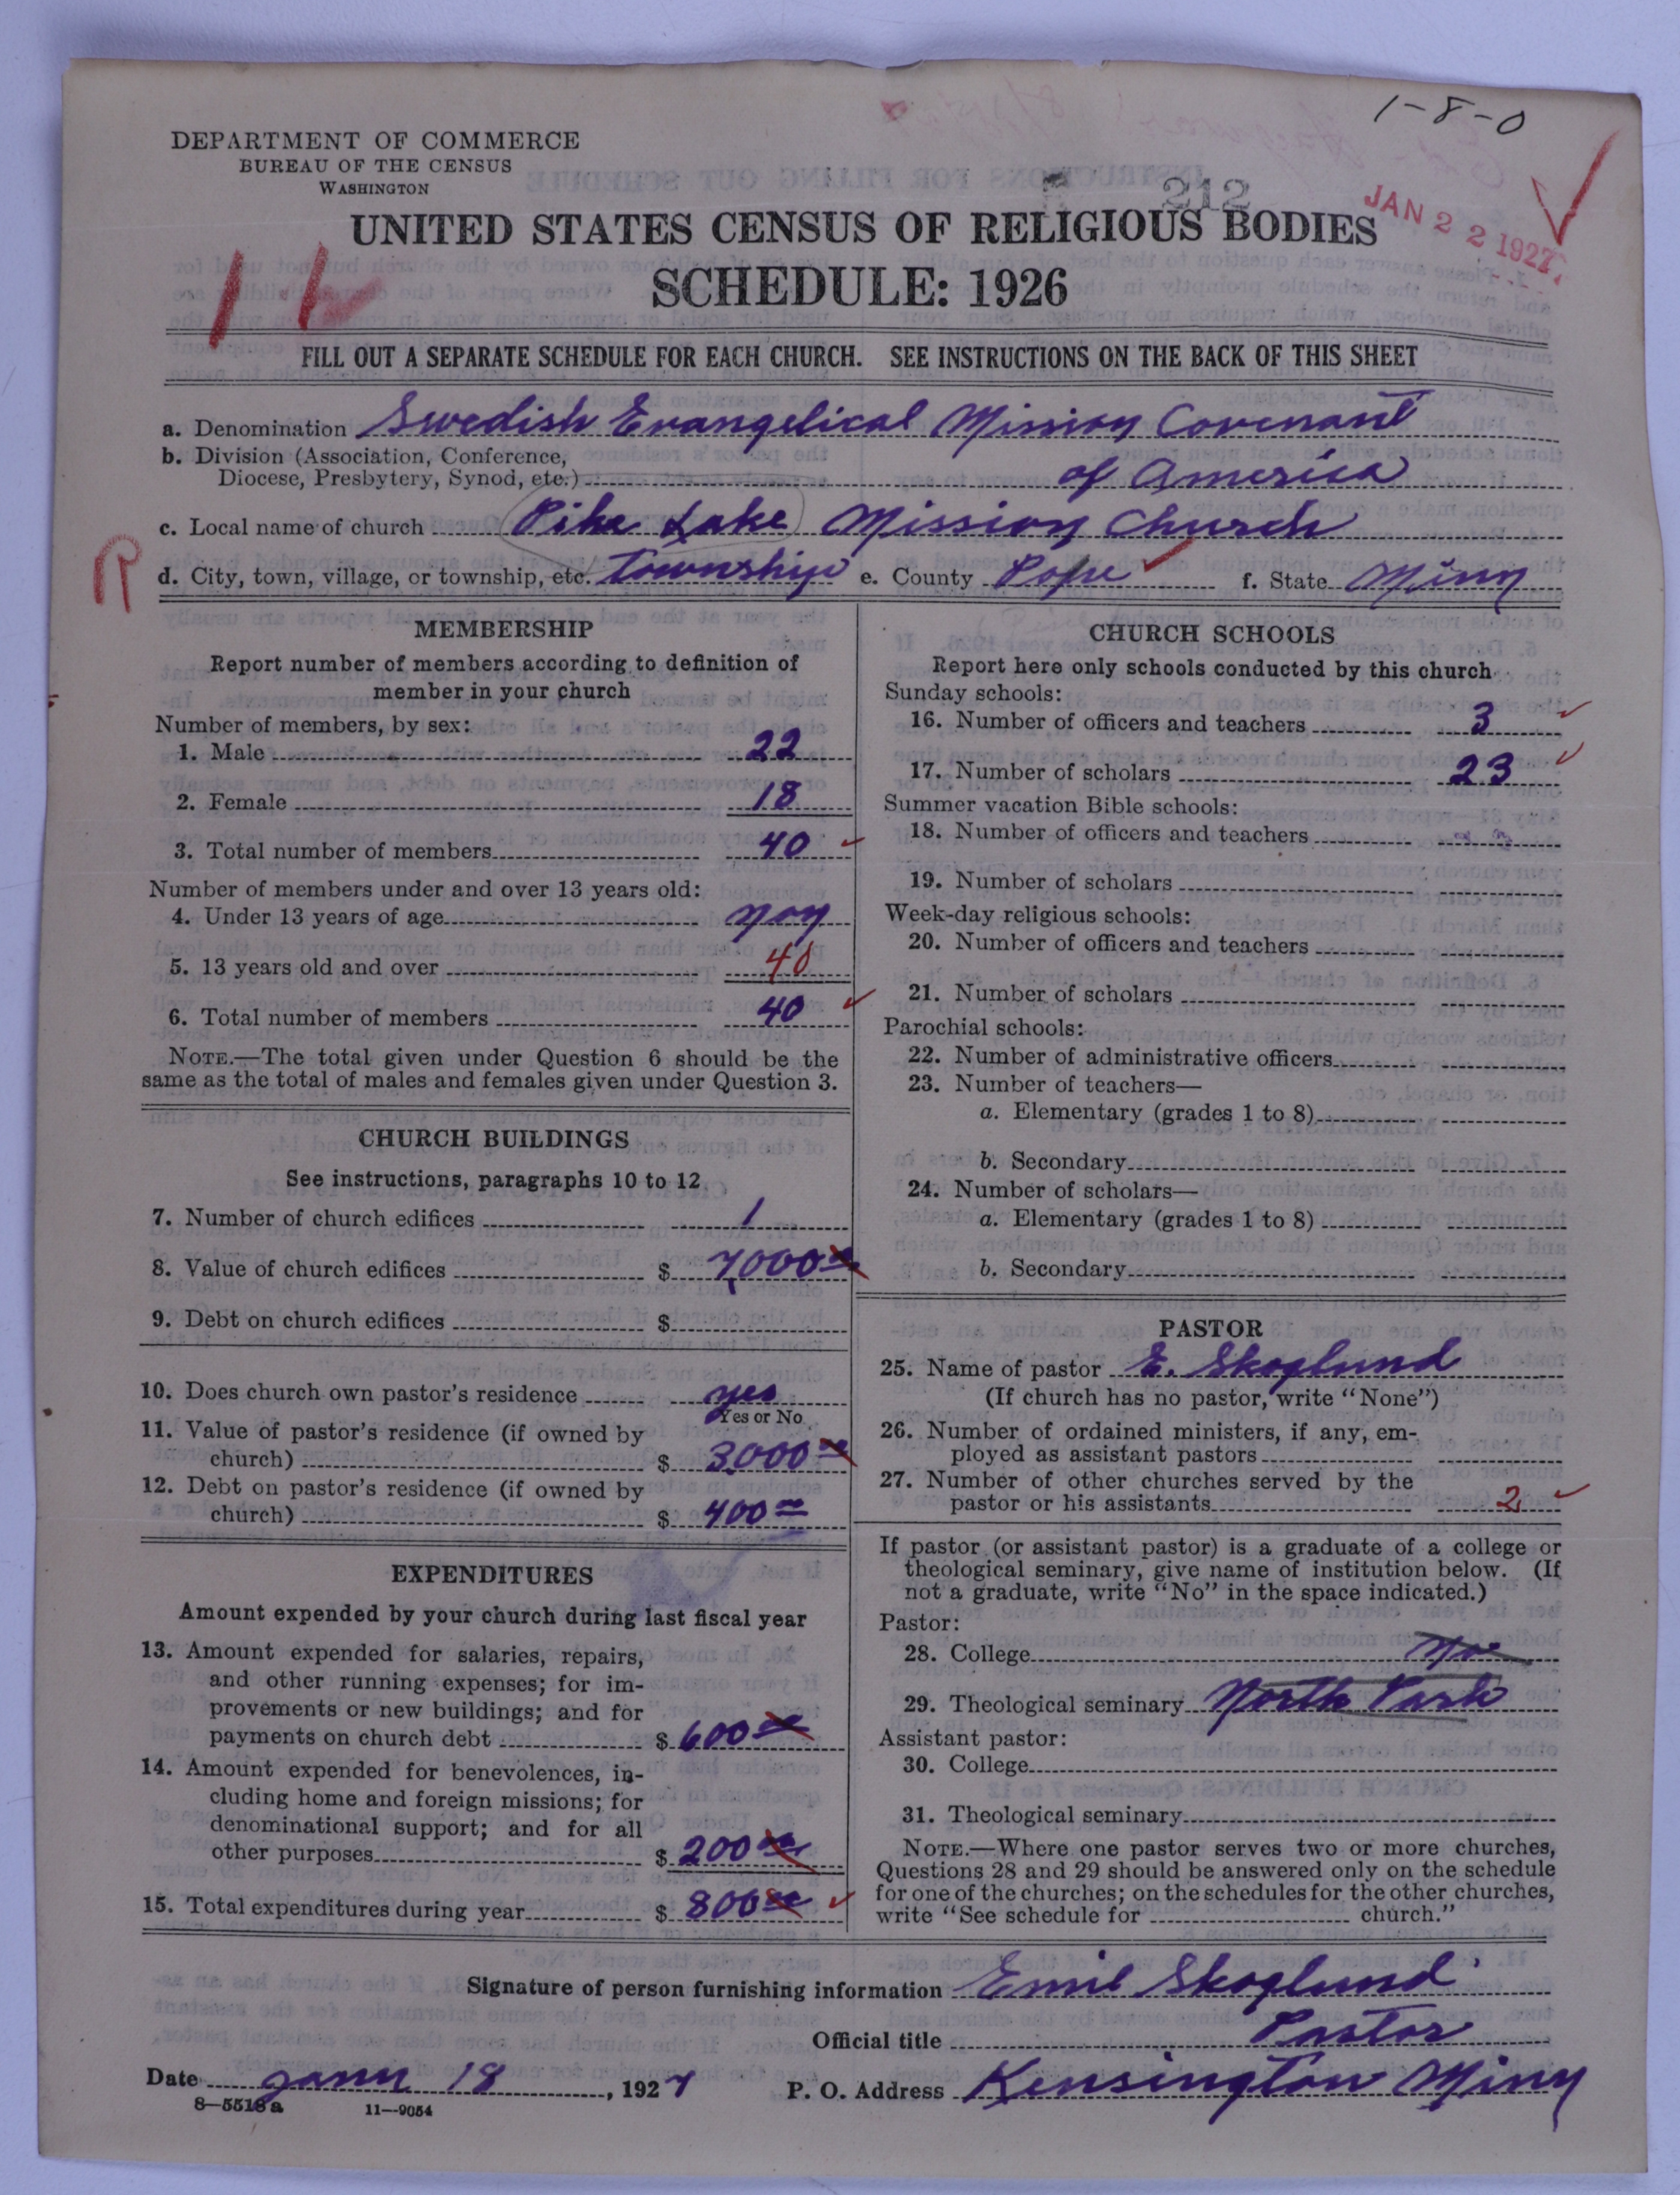 1-8-0
DEPARTMENT OF COMMERCE
BUREAU OF THE CENSUS
WASHINGTON
212
JAN 22 1927
UNITED STATES CENSUS OF RELIGIOUS BODIES
SCHEDULE: 1926
11
FILL OUT A SEPARATE SCHEDULE FOR EACH CHURCH. SEE INSTRUCTIONS ON THE BACK OF THIS SHEET
a. Denomination Swedish Evangelical Mission Covenant
b. Division (Association, Conference,
Diocese, Presbytery, Synod, etc.) of America
c. Local name of church Pike Lake Mission Church
R
d. City, town, village, or township, etc. Township e. County Pope f. State Minn
MEMBERSHIP
Report number of members according to definition of
member in your church
Number of members, by sex:
1. Male 22
2. Female 18
3. Total number of members 40
Number of members under and over 13 years old:
4. Under 13 years of age non
5. 13 years old and over 40
6. Total number of members 40
NOTE.—The total given under Question 6 should be the
same as the total of males and females given under Question 3.
CHURCH BUILDINGS
See instructions, paragraphs 10 to 12
7. Number of church edifices 1
8. Value of church edifices $ 7,000 00
9. Debt on church edifices $
10. Does church own pastor's residence yes
Yes or No
11. Value of pastor's residence (if owned by
church) $ 3,000 00
12. Debt on pastor's residence (if owned by
church) $ 400 00
EXPENDITURES
Amount expended by your church during last fiscal year
13. Amount expended for salaries, repairs,
and other running expenses; for im-
provements or new buildings; and for
payments on church debt $ 600 00
14. Amount expended for benevolences, in-
cluding home and foreign missions; for
denominational support; and for all
other purposes $ 200 00
15. Total expenditures during year $ 800 00
CHURCH SCHOOLS
Report here only schools conducted by this church
Sunday schools:
16. Number of officers and teachers 3
17. Number of scholars 23
Summer vacation Bible schools:
18. Number of officers and teachers
19. Number of scholars
Week-day religious schools:
20. Number of officers and teachers
21. Number of scholars
Parochial schools:
22. Number of administrative officers
23. Number of teachers—
a. Elementary (grades 1 to 8)
b. Secondary
24. Number of scholars—
a. Elementary (grades 1 to 8)
b. Secondary
PASTOR
25. Name of pastor E. Skoglund
(If church has no pastor, write "None")
26. Number of ordained ministers, if any, em-
ployed as assistant pastors
27. Number of other churches served by the
pastor or his assistants 2
If pastor (or assistant pastor) is a graduate of a college or
theological seminary, give name of institution below. (If
not a graduate, write "No" in the space indicated.)
Pastor:
28. College No
29. Theological seminary North Park
Assistant pastor:
30. College
31. Theological seminary
NOTE.—Where one pastor serves two or more churches,
Questions 28 and 29 should be answered only on the schedule
for one of the churches; on the schedules for the other churches,
write "See schedule for church."
Signature of person furnishing information Emil Skoglund
Official title Pastor
Date Janu 18, 1927 P. O. Address Kensington Minn
8—5518a 11—9054